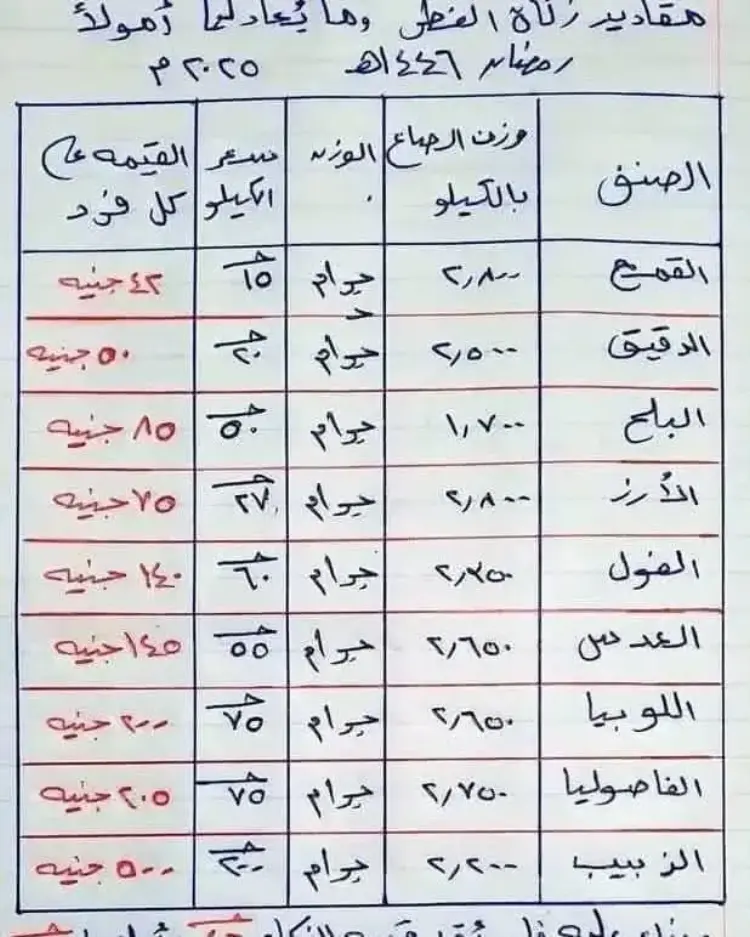 مقادير زكاة الفطر وما يُعادلها أموالاً
رمضان ١٤٤٦هـ ٢٠٢٥ م
الصنف وزن الصاع بالكيلو الوزن سعر الكيلو القيمه على كل فرد
القمح ٢,٨٠٠ جرام ١٥ ٤٢ جنيه
الدقيق ٢,٥٠٠ جرام ٢٠ ٥٠ جنيه
البلح ١,٧٠٠ جرام ٥٠ ٨٥ جنيه
الأرز ٢,٨٠٠ جرام ٢٧ ٧٥ جنيه
الفول ٢,٣٥٠ جرام ٦٠ ١٤٠ جنيه
العدس ٢,٦٥٠ جرام ٥٥ ١٤٥ جنيه
اللوبيا ٢,٦٥٠ جرام ٧٥ ٢٠٠ جنيه
الفاصوليا ٢,٧٥٠ جرام ٧٥ ٢٠٥ جنيه
الزبيب ٢,٢٠٠ جرام ٢٠٠ ٥٠٠ جنيه